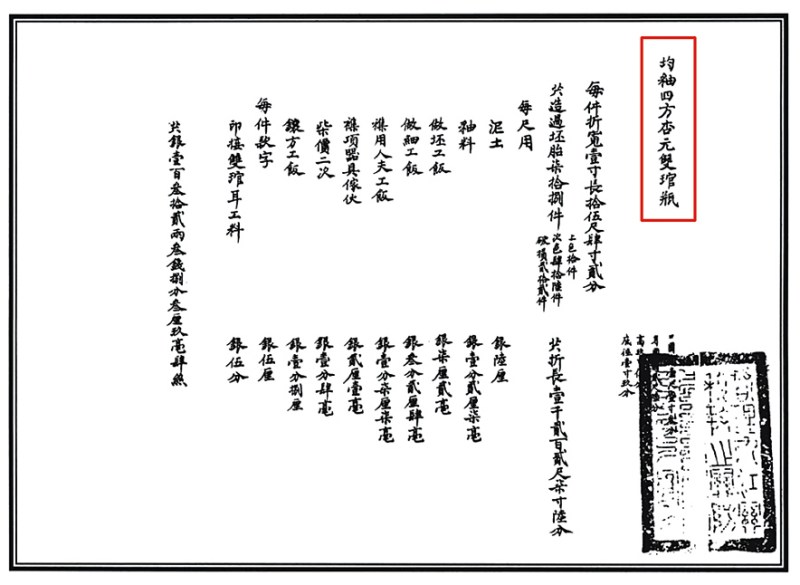 均釉四方杏元雙琯瓶
底徑壹寸玖分
每件折寬壹寸長拾伍尺肆寸貳分
共造過坯胎柒拾捌件
上色拾件
次色肆拾陸件
破損貳拾貳件
共折長壹千貳百貳尺柒寸陸分
每尺用
泥土 銀陸厘
釉料 銀壹分貳厘柒毫
做坯工飯 銀柒厘貳毫
做細工飯 銀叁分貳厘肆毫
襍用人夫工飯 銀壹分柒厘柒毫
襍項器具傢伙 銀貳厘壹毫
柴價二次 銀壹分肆毫
鑲方工飯 銀壹分捌厘
每件款字 銀伍厘
印接雙琯耳工料 銀伍分
共銀壹百叁拾貳兩叁錢捌分叁厘玖毫肆絲